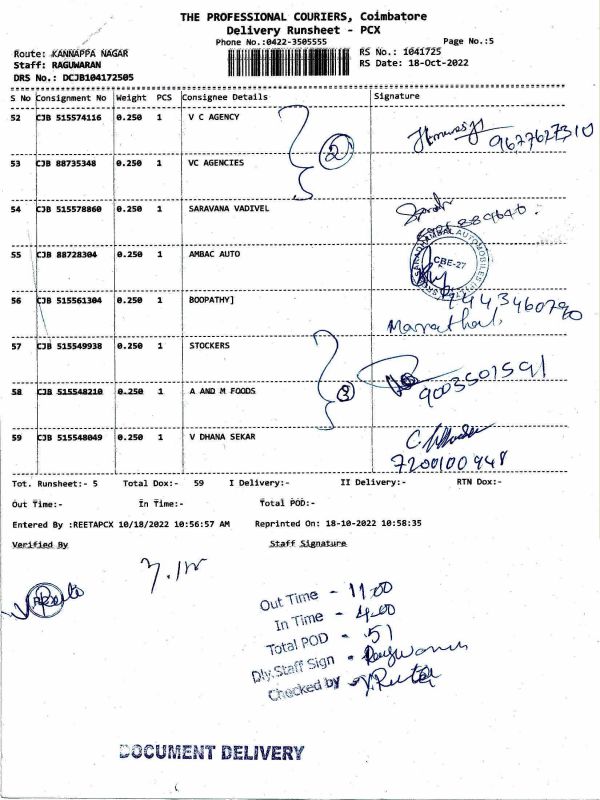 THE PROFESSIONAL COURIERS, Coimbatore
Delivery Runsheet - PCX
Phone No.:0422-3505555 Page No.:5
Route: KANNAPPA NAGAR RS No.: 1041725
Staff: RAGUWARAN RS Date: 18-Oct-2022
DRS No.: DCJB104172505
S No Consignment No Weight PCS Consignee Details Signature
52 CJB 515574116 0.250 1 V C AGENCY
2 9627627310
53 CJB 88735348 0.250 1 VC AGENCIES
54 CJB 515578860 0.250 1 SARAVANA VADIVEL
55 CJB 88728304 0.250 1 AMBAC AUTO
CBE-27
56 CJB 515561304 0.250 1 BOOPATHY]
57 CJB 515549938 0.250 1 STOCKERS
9003501591
58 CJB 515548210 0.250 1 A AND M FOODS 3
59 CJB 515548049 0.250 1 V DHANA SEKAR
7200100948
Tot. Runsheet:- 5 Total Dox:- 59 I Delivery:- II Delivery:- RTN Dox:-
Out Time:- In Time:- Total POD:-
Entered By :REETAPCX 10/18/2022 10:56:57 AM Reprinted On: 18-10-2022 10:58:35
Verified By Staff Signature
Out Time - 11.00
In Time - 4.00
Total POD - 51
Dly.Staff Sign - Raguwaran
Checked by
DOCUMENT DELIVERY